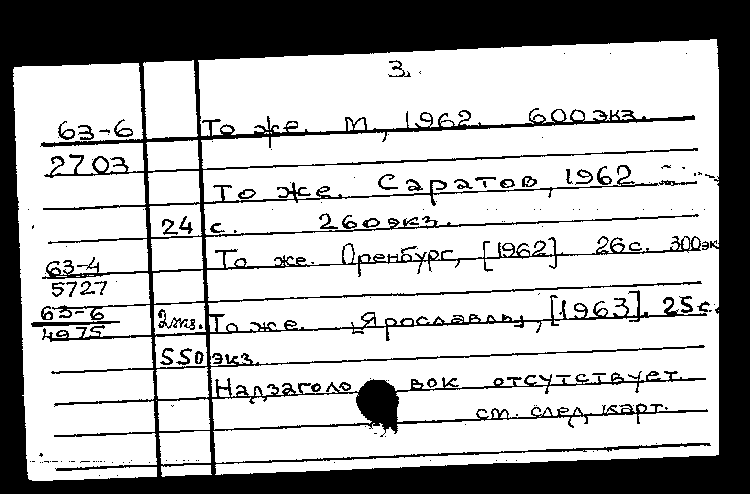 3.
63-6 То же. М., 1962. 600 экз.
2703
То же. Саратов, 1962
24 с. 260 экз.
63-4 То же. Оренбург, [1962]. 26 с. 300 эк
5727
63-6 2 тз. То же. [Ярославль], [1963]. 25 с.
4975
550 экз.
Надзаголовок отсутствует.
см. след. карт.